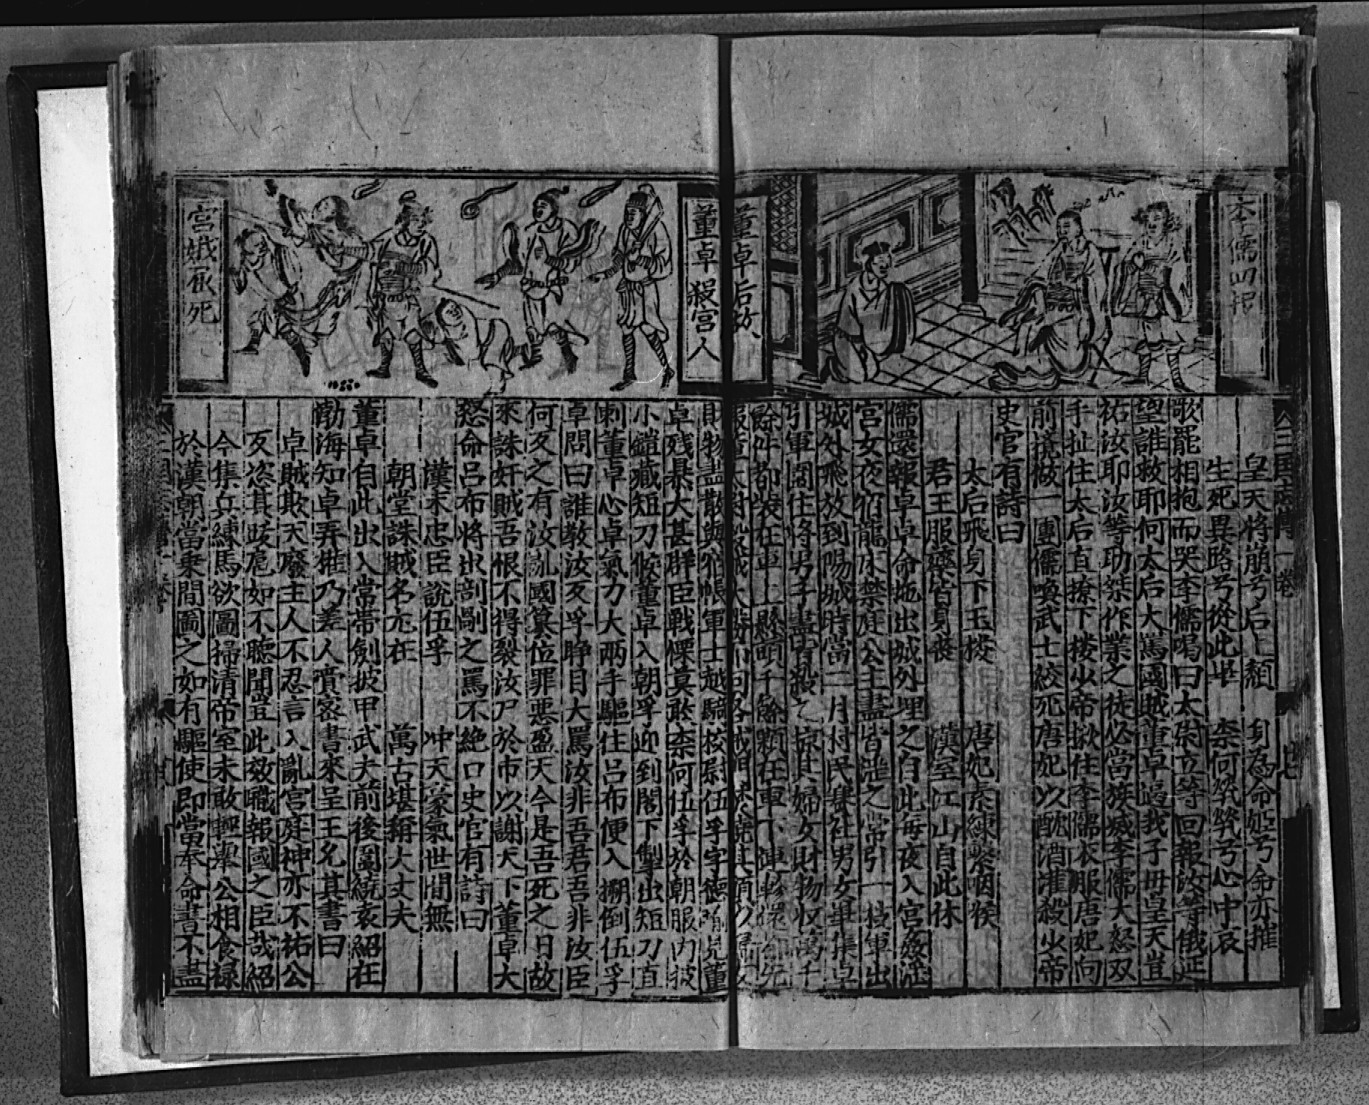 李儒回报
董卓后放
皇天将崩兮后土頹　身為命姬兮命亦摧
生死異路兮從此畢　柰何煢煢兮心中哀
歌罷相抱而哭李儒喝曰太尉立等回報汝等俄延
望誰救耶何太后大罵國賊董卓逼我子母皇天豈
祐汝耶汝等助桀作業之徒必當族滅李儒大怒双
手扯住太后直撩下楼少帝揪住李儒衣服唐妃向
前撓做一團儒喚武士絞死唐妃以酖酒灌殺少帝
史官有詩曰
太后飛身下玉楼　唐妃索練繫咽喉
君王服藥　漢室江山自此休
儒還報卓卓命拖出城外埋之自此每夜入宮姦淫
宮女夜宿龍床禁庭公主盡皆淫之常引一枝軍出
城外飛放到陽城時當二月村民賽社男女畢集卓
引軍圍住將男子盡皆殺之掠其婦女財物收萬千
餘件都裝在車上懸頭千餘顆在車下連軫還
董卓殺宮人
宮娥夜死
財物盡散與帳軍士越騎校尉伍孚字德瑜見董
卓残暴大甚群臣戰慄莫敢柰何伍孚於朝服內披
小鎧藏短刀候董卓入朝孚迎到閣下掣出短刀直
刺董卓心卓氣力大兩手驅住呂布便入揪倒伍孚
卓問曰誰教汝反孚睜目大罵汝非吾君吾非汝臣
何反之有汝乱國篡位罪惡盈天今是吾死之日故
來誅奸賊吾恨不得裂汝尸於市以謝天下董卓大
怒命呂布将出剖剮之罵不絕口史官有詩曰
漢末忠臣說伍孚　冲天豪氣世間無
朝堂誅賊名尤在　萬古堪稱大丈夫
董卓自此出入常帶劍披甲武夫前後圍繞袁紹在
勃海知卓弄權乃差人賫密書來呈王允其書曰
卓賊欺天廢主人不忍言入亂宮庭神亦不祐公
反恣其跋扈如不聽聞豈此效職報國之臣哉紹
今集兵練馬欲圖掃清帝室未敢輕舉公相食祿
於漢朝當乗間圖之如有驅使即當奉命書不盡